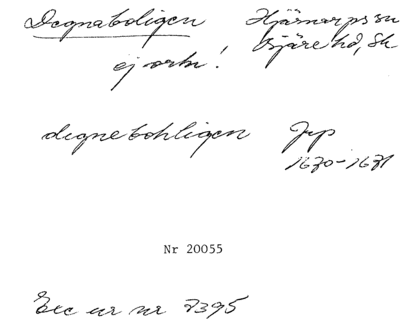 Degnaboligen Hjärnarps sn
ej ortn! Bjäre hd, Sk
degnebohligen Jrp
1670-1671
Nr 20055
Exc ur nr 7395